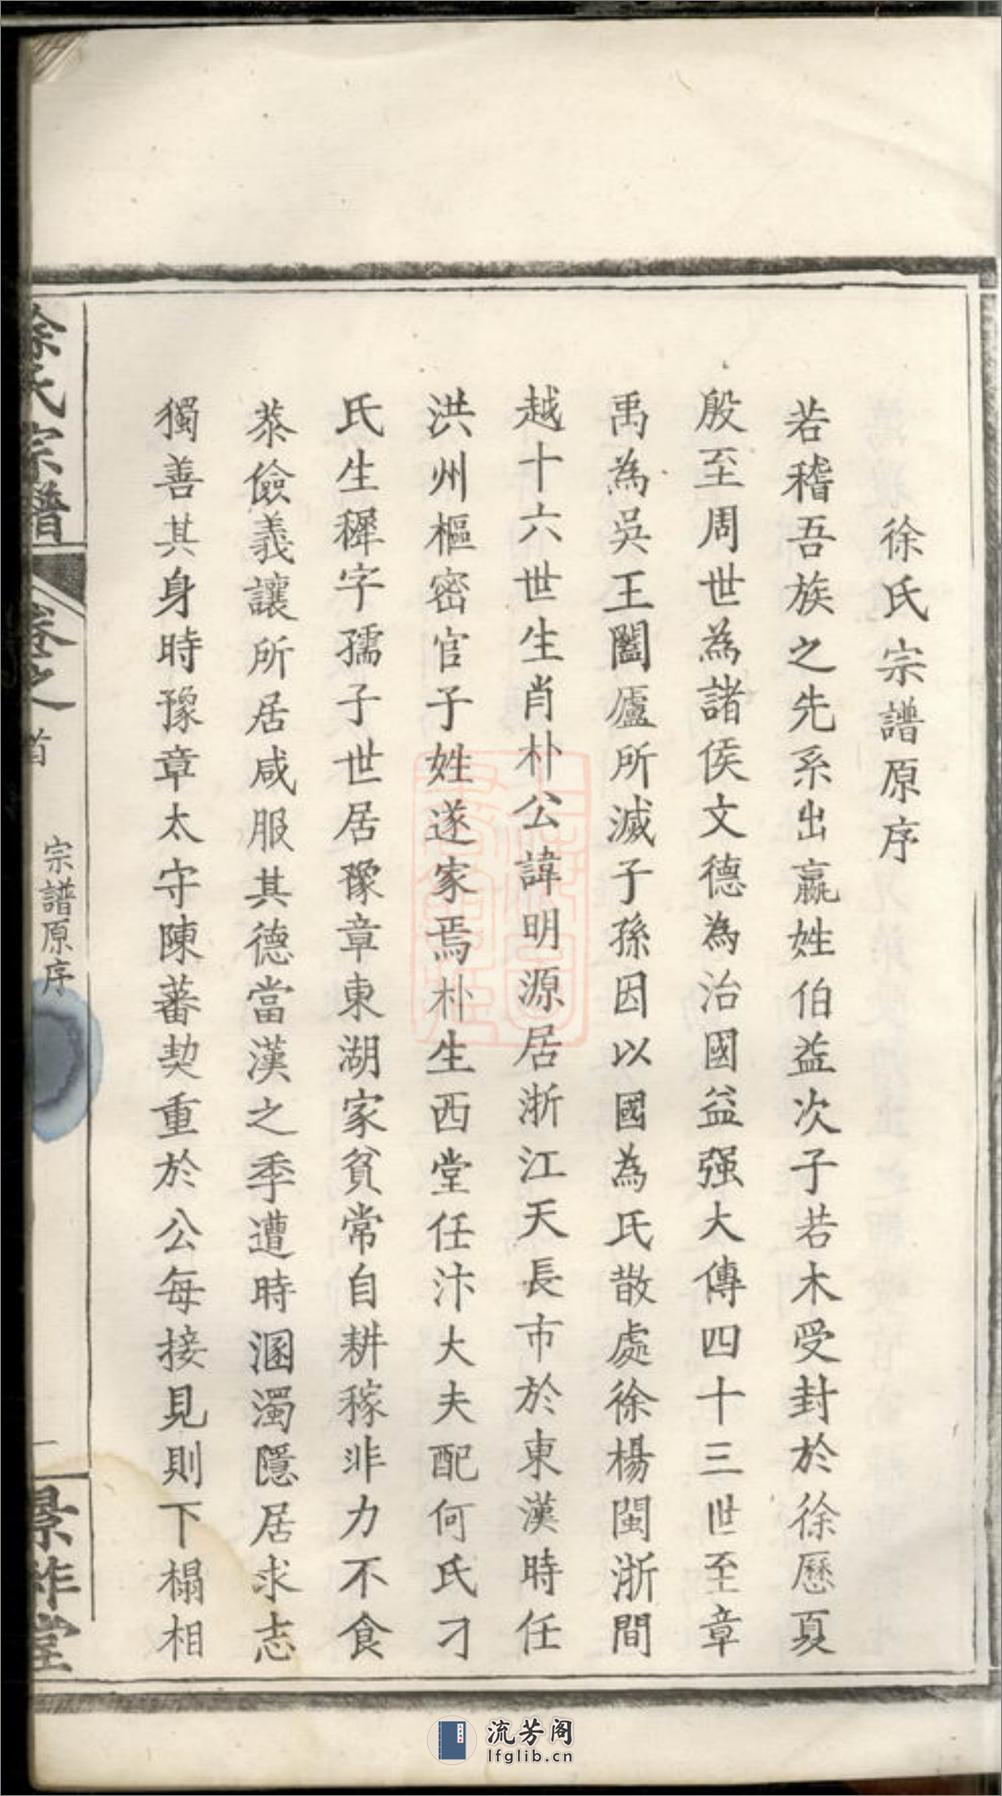 徐氏宗譜原序
若稽吾族之先系出嬴姓伯益次子若木受封於徐歷夏
殷至周世為諸侯文德為治國益强大傳四十三世至章
禹為吳王闔廬所滅子孫因以國為氏散處徐楊閩浙間
越十六世生肖朴公諱明源居浙江天長市於東漢時任
洪州樞密官子姓遂家焉朴生西堂任汴大夫配何氏刁
氏生穉字孺子世居豫章東湖家貧常自耕稼非力不食
恭儉義讓所居咸服其德當漢之季遭時溷濁隱居求志
獨善其身時豫章太守陳蕃契重於公每接見則下榻相
徐氏宗譜
卷之首
宗譜原序
一
堂
流芳阁
lfglib.cn